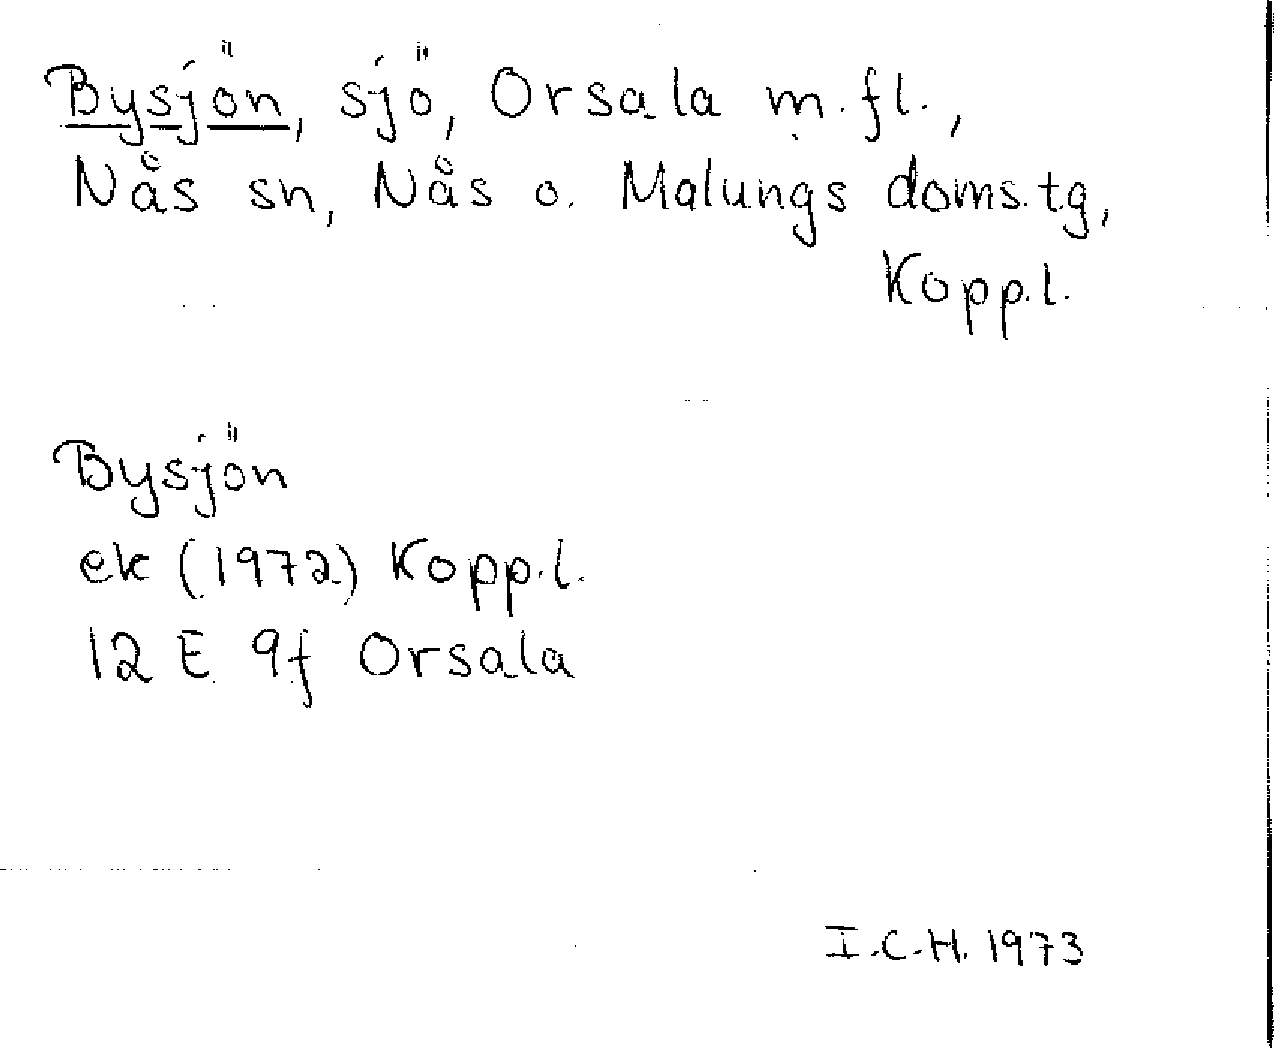 Bysjön, sjö, Orsala m.fl.,
Nås sn, Nås o. Malungs doms.tg,
Kopp.l.
Bysjön
ek (1972) Kopp.l.
12 E 9f Orsala
I.C.H. 1973